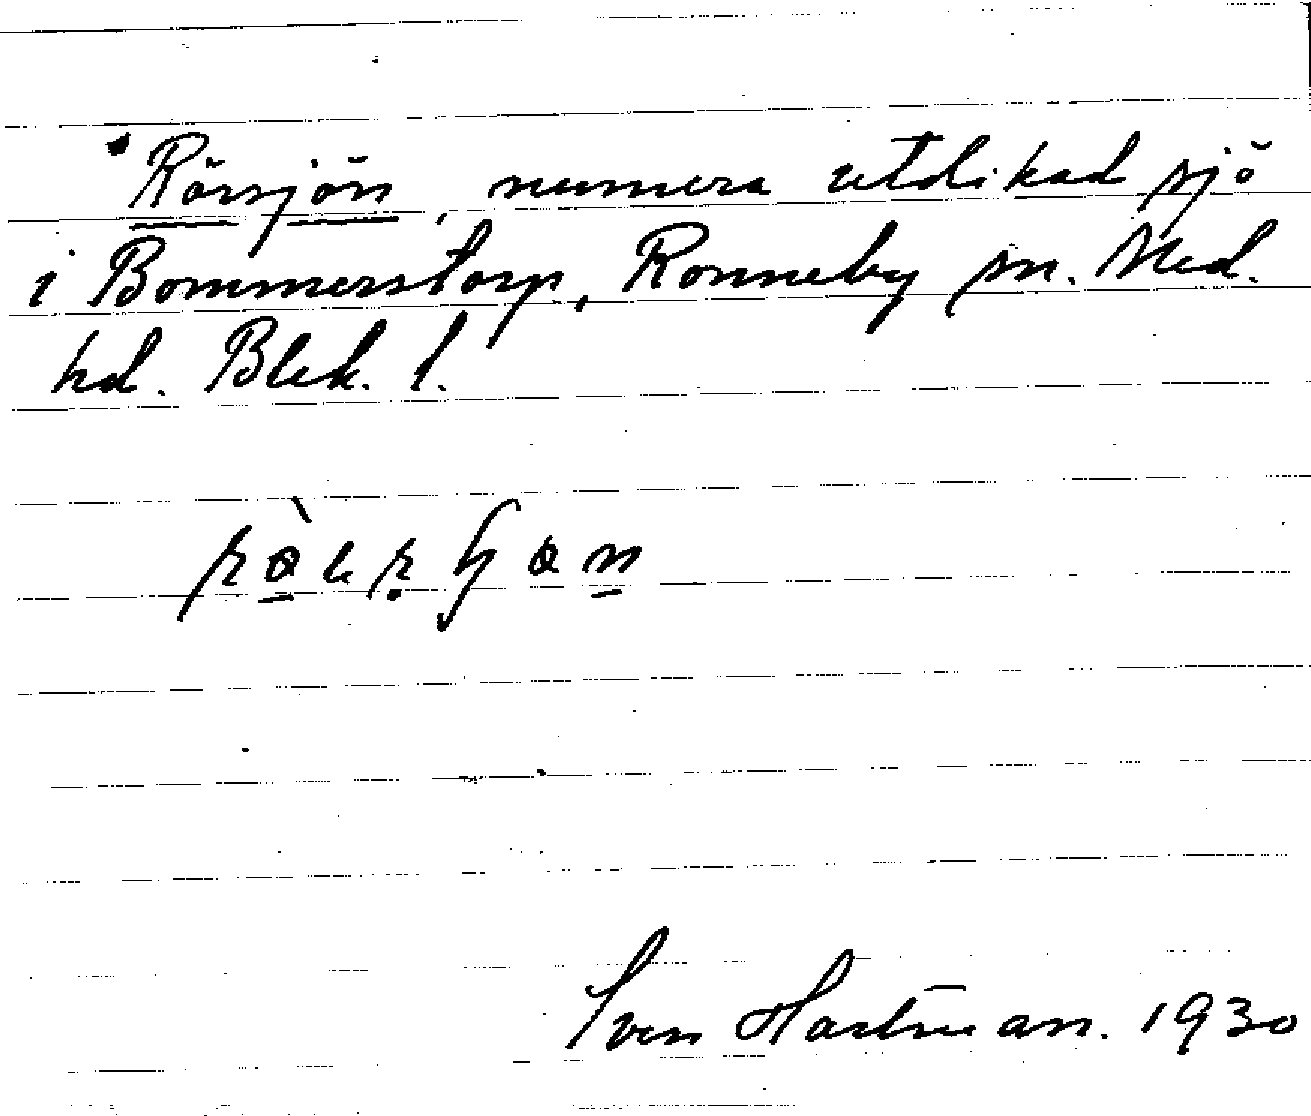 Rörsjön, numera utdikad sjö
i Bommerstorp, Ronneby sn. Med.
hd. Blek. l.
Sven Hartman. 1930